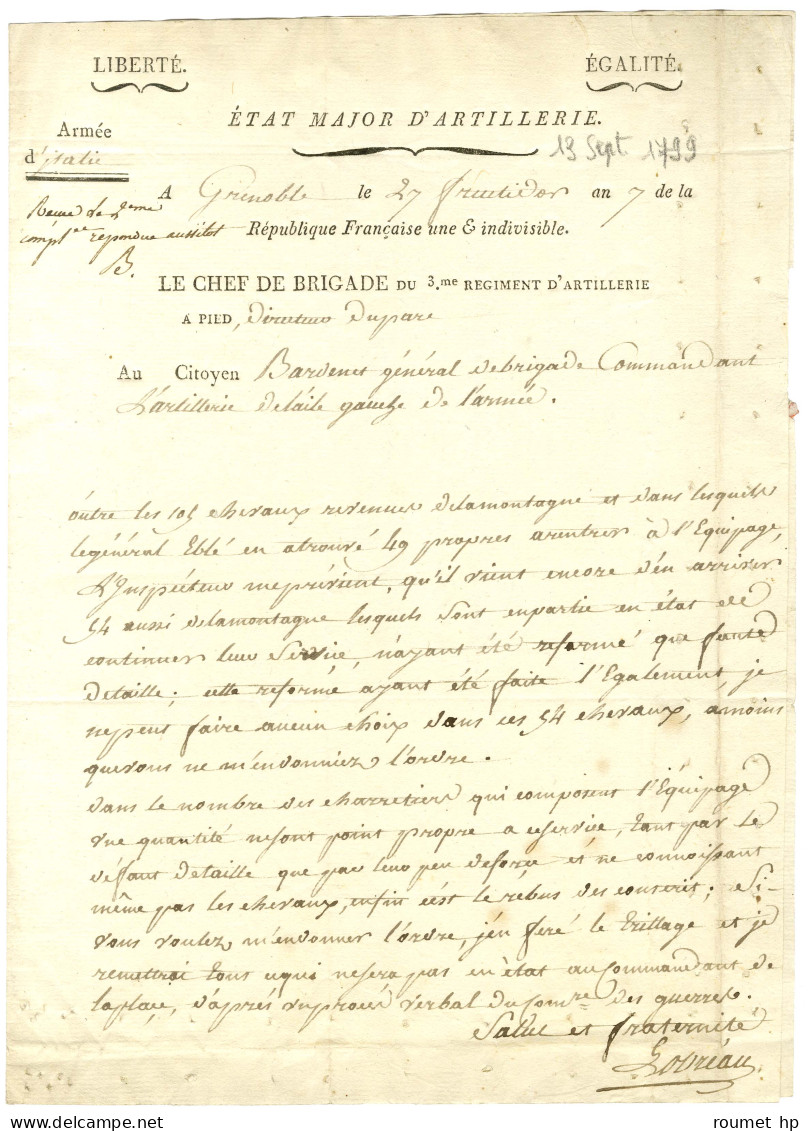 LIBERTÉ. ÉGALITÉ.
ÉTAT MAJOR D'ARTILLERIE.
Armée
d'Italie
13 Sept 1799
A Grenoble le 27 fructidor an 7 de la
République Française une & indivisible.
Recue le 2eme
compl.re repondue aussitot
B.
LE CHEF DE BRIGADE DU 3.me REGIMENT D'ARTILLERIE
A PIED, directeur duparc
Au Citoyen Bardenet général debrigade Commandant
L'artillerie del'aile gauche de l'armée.
outre les 105 chevaux revenus delamontagne et dans lesquels
legénéral Eblé en atrouvé 49 propres arentrer à l'Equipage,
L'Inspécteur meprévient, qu'il vient encore d'en arriver
54 aussi delamontagne lesquels sont enpartie en état de
continuer leur Service, n'ayant été reformé que faute
detaille; cette reforme ayant été faite l'Egalement, je
nepeus faire aucun choix dans ces 54 chevaux, àmoins
quevous ne m'endonniez l'ordre.
Dans le nombre des charretiers qui composent l'Équipage
une quantité nesont point propre a ceservice, tant par le
défaut detaille que par leur peu deforce et ne connoissant
même pas les chevaux, enfin c'est le rebus des conscrit; Si-
vous voulez m'endonner l'ordre, j'en feré le trillage et je
remettrai tous cequi nesera pas en état aucommandant de
laplace, d'après unprocés verbal ducom.re des guerres.
Salut et fraternité